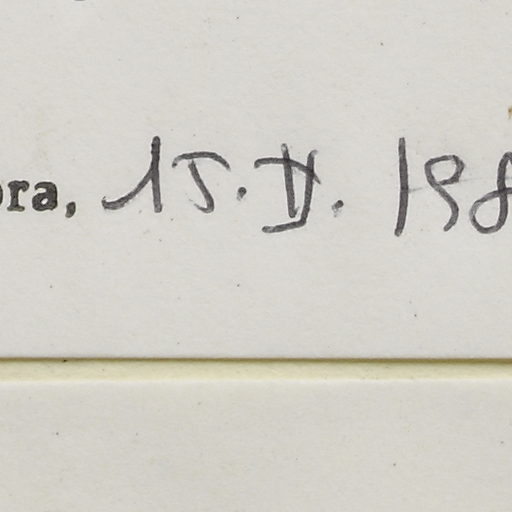 ora, 15. II. 198